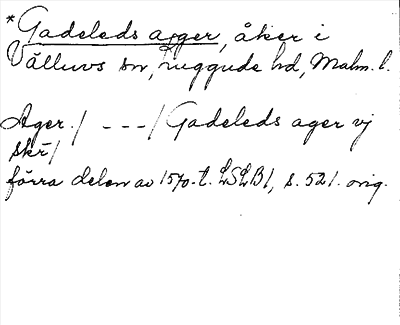 *Gadeleds ager, åker i
Välluvs sn, Luggude hd, Malm. l.
Ager / - - - / Gadeleds ager vj
skr /
förra delen av 1570-t. LSLB1, s. 521. orig.